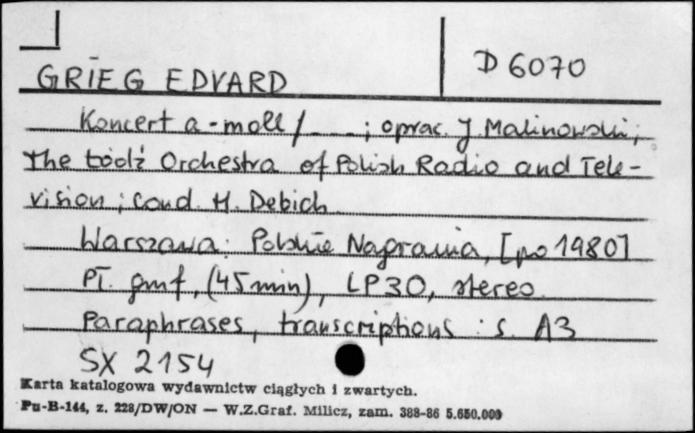 D 6070
GRIEG EDVARD
Koncert a-moll / ___ ; oprac. J Malinowski ;
The Łódź Orchestra of Polish Radio and Tele-
vision ; cond. H. Debich
Warszawa : Polskie Nagrania, [po 1980]
Pł. gmf, (45 min), LP30, stereo
Paraphrases, transcriptions : s A3
SX 2154
Karta katalogowa wydawnictw ciągłych i zwartych.
Pu-B-144, z. 228/DW/ON — W.Z.Graf. Milicz, zam. 388-86 5.650.000